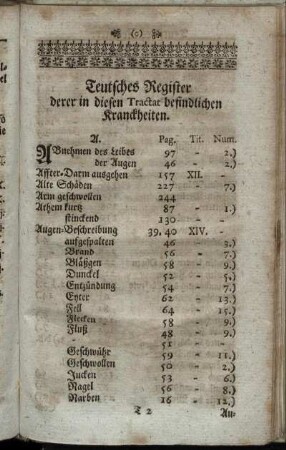 (o)
Teutsches Register
derer in diesen Tractat befindlichen
Kranckheiten.
A. Pag. Tit. Num.
ABnehmen des Leibes 97 - 2.)
der Augen 46 - 2.)
Affter-Darm ausgehen 157 XII.
Alte Schäden 227 - 7.)
Arm geschwollen 244
Athem kurtz 87 - 1.)
stinckend 130 -
Augen-Beschreibung 39. 40 XIV.
aufgespalten 46 - 3.)
Brand 56 - 7.)
Bläßgen 58 - 9.)
Dunckel 52 - 5.)
Entzündung 54 - 7.)
Eyter 62 - 13.)
Fell 64 - 15.)
Flecken 58 - 9.)
Fluß 48 - 9.)
- 51 -
Geschwühr 59 - 11.)
Geschwollen 50 - 2.)
Jucken 53 - 6.)
Nagel 56 - 8.)
Narben 16 - 12.)
T 2 Au-